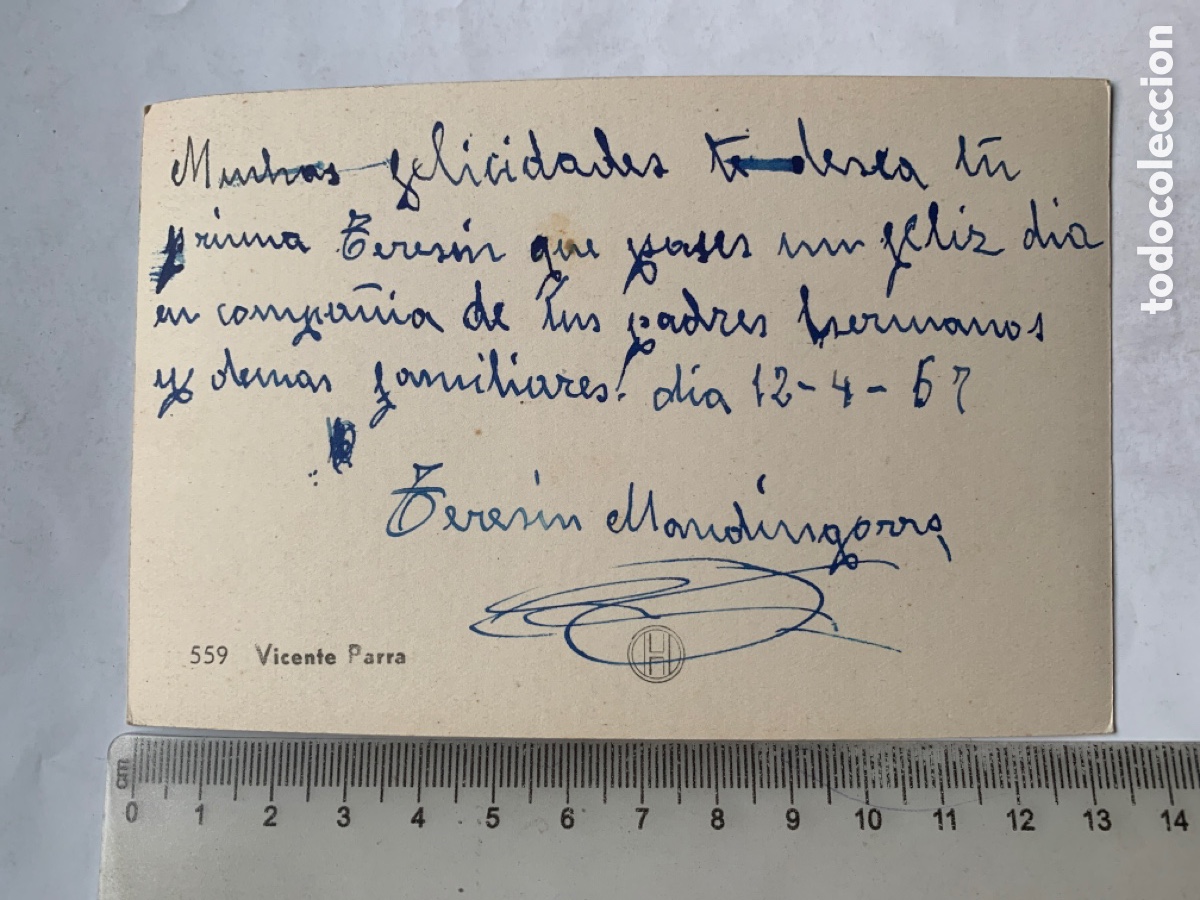 Muchas felicidades te desea tú
prima Teresín que pases un feliz dia
en compañia de tus padres hermanos
y demas familiares! dia 12-4-67
Teresín Mandingorra
559 Vicente Parra
H
cm
0 1 2 3 4 5 6 7 8 9 10 11 12 13 14
todocoleccion